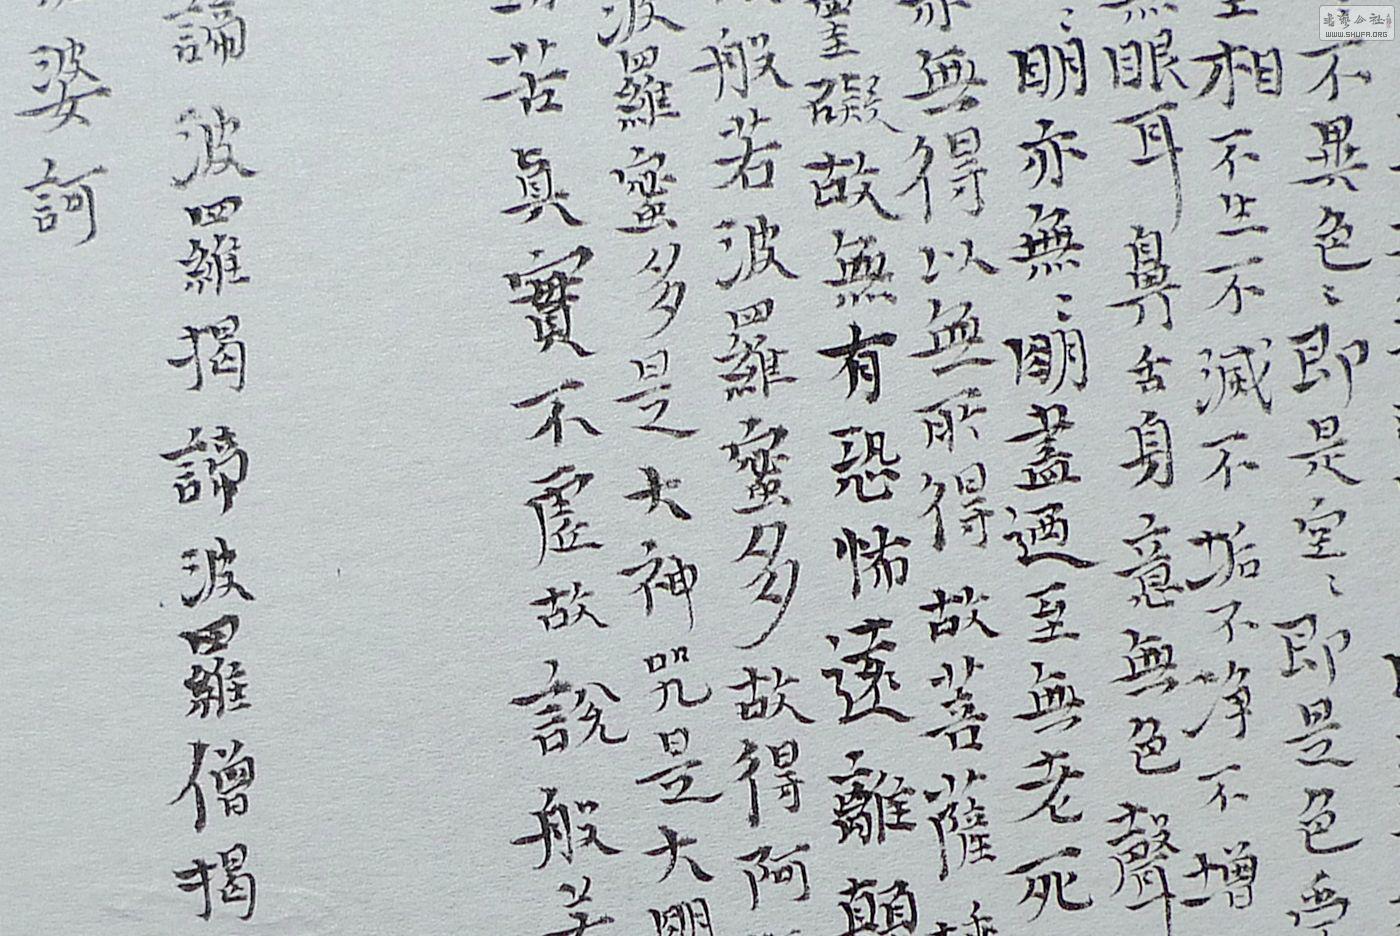 不異色〻即是空〻即是色受
相不生不減不垢不净不增
無眼耳鼻舌身意無色聲
明亦無〻明盡迺至無老死
亦無得以無所得故菩薩
罣礙故無有恐怖遠離顛
般若波羅蜜多故得阿
波羅蜜多是大神咒是大明
苦真實不虛故說般若
諦波羅揭諦波羅僧揭
婆訶
书艺公社
WWW.SHUFA.ORG